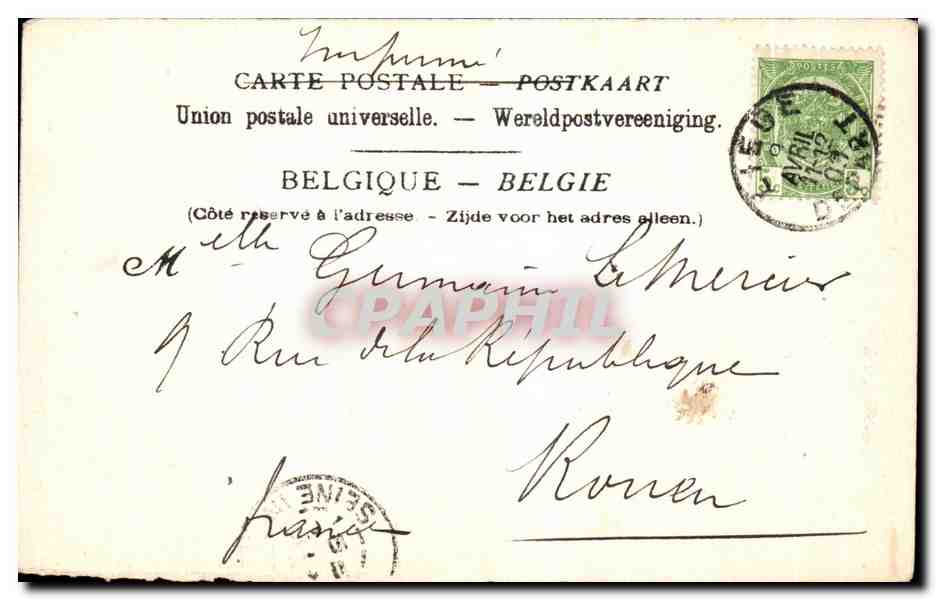 Imprimé
CARTE POSTALE — POSTKAART
Union postale universelle. — Wereldpostvereeniging.
BELGIQUE — BELGIE
(Côté réservé à l'adresse. - Zijde voor het adres alleen.)
Melle Germaine LeMercier
9 Rue de la République
Rouen
france
CPAPHIL
LIEGE
AVRIL
11-12
DEPART
POSTES
SEINE